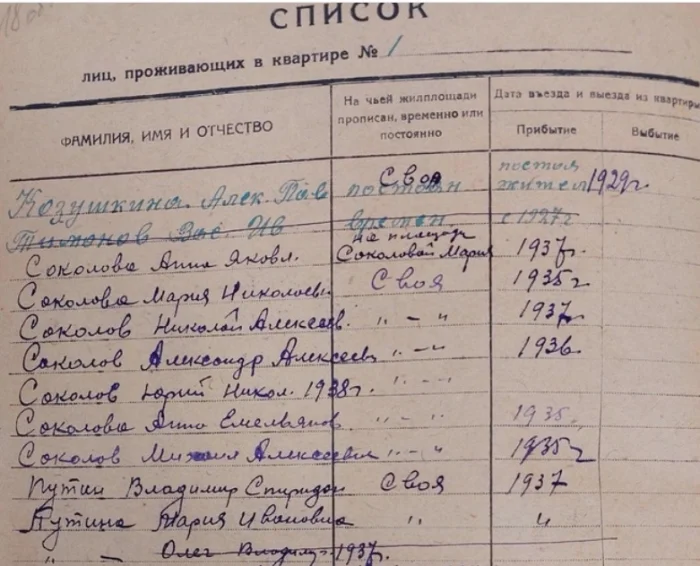 СПИСОК
лиц, проживающих в квартире № 1
ФАМИЛИЯ, ИМЯ И ОТЧЕСТВО
На чьей жилплощади прописан, временно или постоянно
Дата въезда и выезда из квартиры
Прибытие Выбытие
Козушкина Алек. Пав постоян Своя постоя жител 1929г.
Тимонов Вас. Ив времен. с 1927г
Соколова Анна Яковл. на площади Соколовой Мария 1937г.
Соколова Мария Николаевн Своя 1935г
Соколов Николай Алексеев. " – " 1937
Соколов Александр Алексеев " – " 1936
Соколов Юрий Никол. 1938г. " – "
Соколова Анна Емельянов. " – " 1935
Соколов Михаил Алексеевич " – " 1935г
Путин Владимир Спиридон Своя 1937
Путина Мария Ивановна " "
" – Олег Владим 1937г.